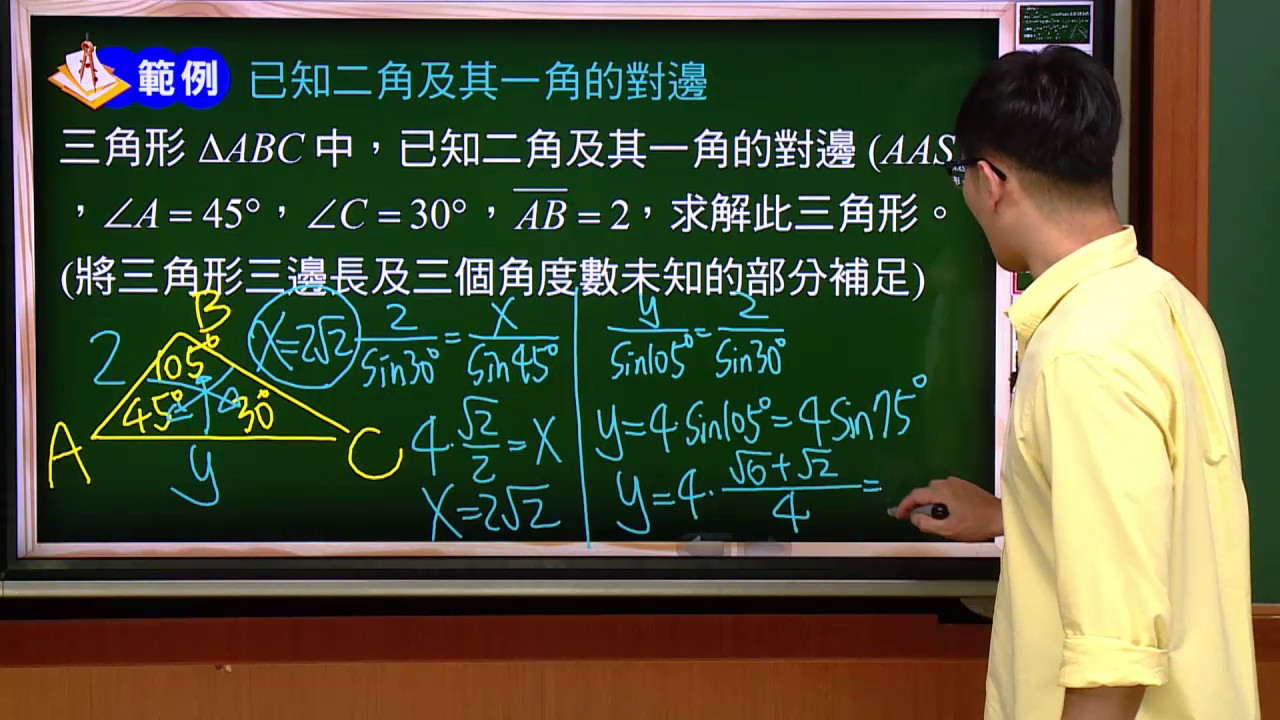 範例 已知二角及其一角的對邊
三角形 ΔABC 中，已知二角及其一角的對邊 (AAS
，∠A = 45°，∠C = 30°，\overline{AB} = 2，求解此三角形。
(將三角形三邊長及三個角度數未知的部分補足)
B
2
105°
45°
30°
A
y
C
x=2√2
2/sin30° = x/sin45°
4·√2/2 = x
x=2√2
y/sin105° = 2/sin30°
y=4 sin105°=4 sin75°
y=4·(√6+√2)/4=